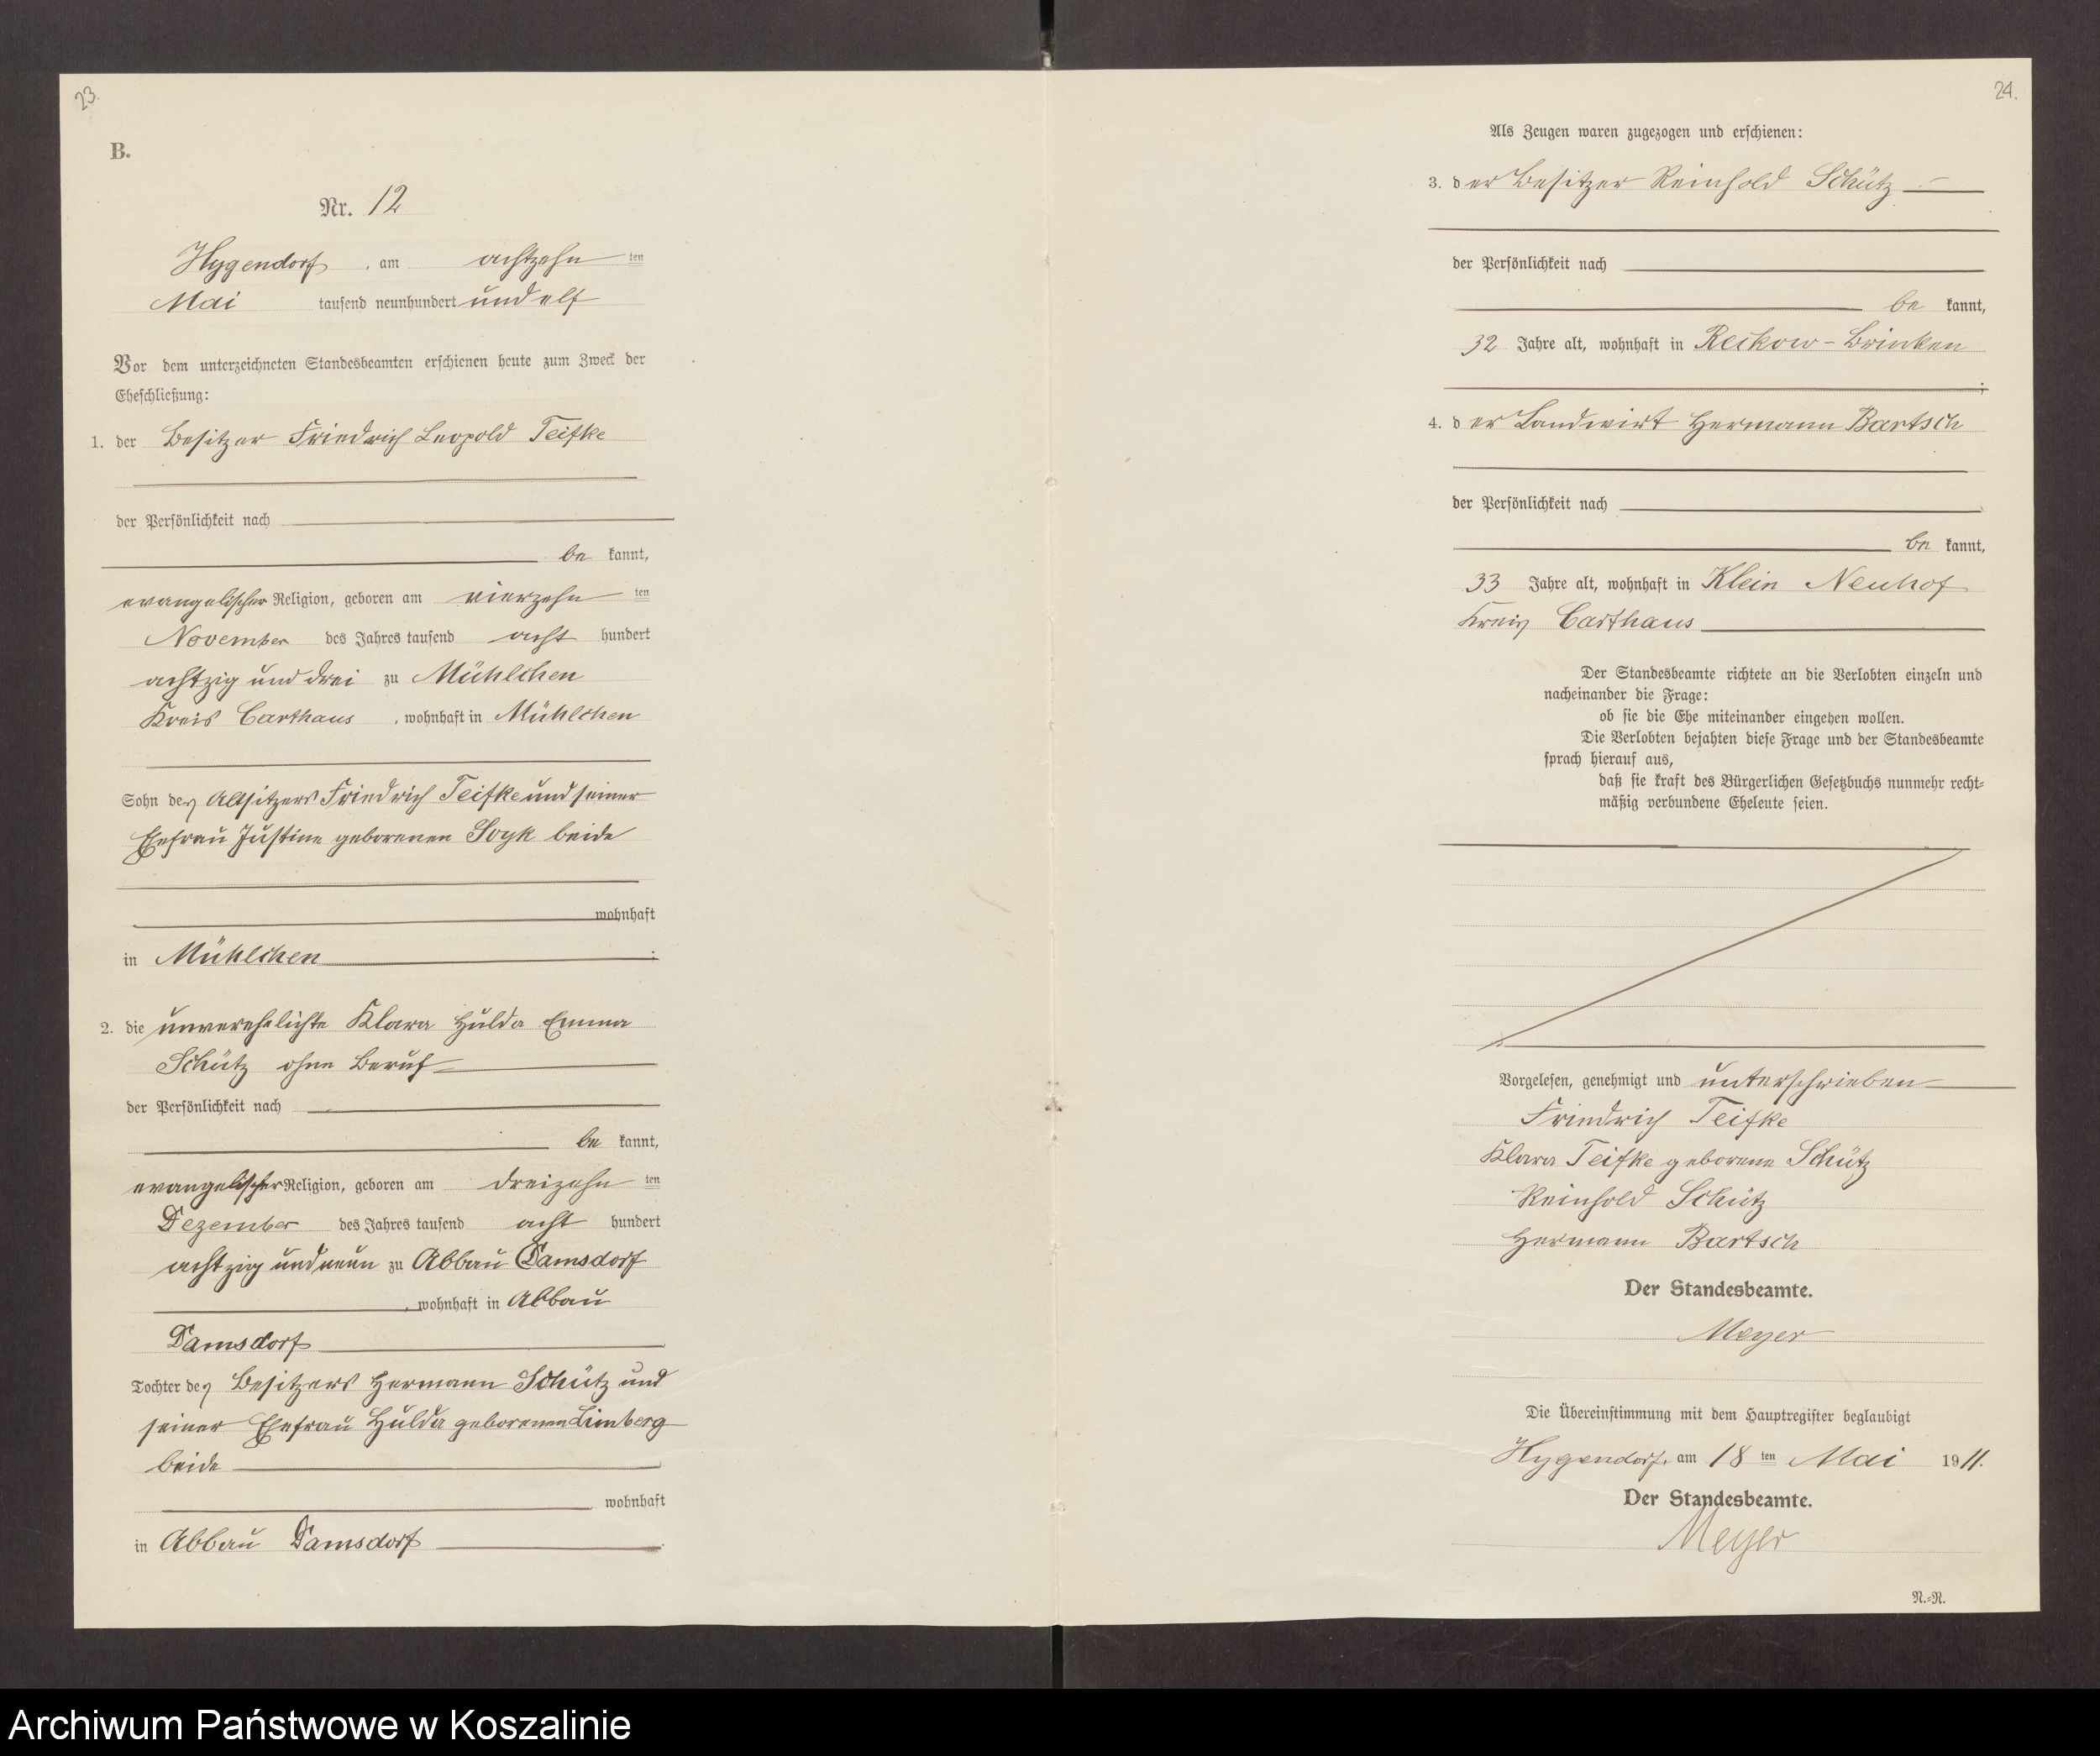 23.
B.
Nr. 12
Hygendorf, am achtzehn ten
Mai tausend neunhundert und elf
Vor dem unterzeichneten Standesbeamten erschienen heute zum Zweck der
Eheschließung:
1. der Besitzer Friedrich Leopold Teifke
der Persönlichkeit nach
be kannt,
evangelischer Religion, geboren am vierzehn ten
November des Jahres tausend acht hundert
achtzig und drei zu Mühlchen
Kreis Carthaus, wohnhaft in Mühlchen
Sohn des Altsitzers Friedrich Teifke und seiner
Ehefrau Justine geborenen Soyk beide
wohnhaft
in Mühlchen ;
2. die unverehelichte Klara Hulda Emma
Schütz ohne Beruf
der Persönlichkeit nach
be kannt,
evangelischer Religion, geboren am dreizehn ten
Dezember des Jahres tausend acht hundert
achtzig und neun zu Abbau Damsdorf
, wohnhaft in Abbau
Damsdorf
Tochter des Besitzers Hermann Schütz und
seiner Ehefrau Hulda geborenen Limberg
beide
wohnhaft
in Abbau Damsdorf .
24.
Als Zeugen waren zugezogen und erschienen:
3. der Besitzer Reinhold Schütz
der Persönlichkeit nach
be kannt,
32 Jahre alt, wohnhaft in Reckow-Brinken
;
4. der Landwirt Hermann Bartsch
der Persönlichkeit nach
be kannt,
33 Jahre alt, wohnhaft in Klein Neuhof
Kreis Carthaus
Der Standesbeamte richtete an die Verlobten einzeln und
nacheinander die Frage:
ob sie die Ehe miteinander eingehen wollen.
Die Verlobten bejahten diese Frage und der Standesbeamte
sprach hierauf aus,
daß sie kraft des Bürgerlichen Gesetzbuchs nunmehr recht-
mäßig verbundene Eheleute seien.
Vorgelesen, genehmigt und unterschrieben
Friedrich Teifke
Klara Teifke geborene Schütz
Reinhold Schütz
Hermann Bartsch
Der Standesbeamte.
Meyer
Die Übereinstimmung mit dem Hauptregister beglaubigt
Hygendorf, am 18 ten Mai 1911.
Der Standesbeamte.
Meyer
N.-R.
Archiwum Państwowe w Koszalinie